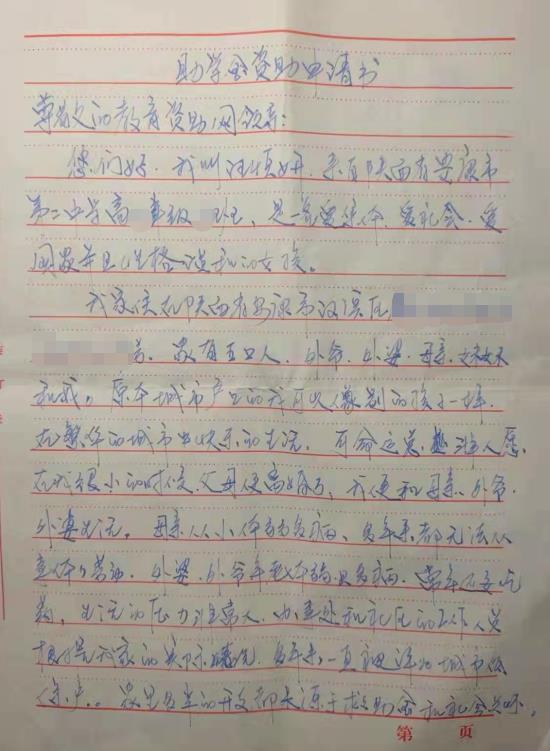 助学金资助申请书
尊敬的教育资助网领导:
您们好.我叫汪顷妍.来自陕西省安康市
第二中学高 年级 班,是一名爱集体、爱社会、爱
国家并且性格 和的女孩。
我家住在陕西省安康市汉滨区
号.家有五口人.外爷.外婆.母亲.妹妹
和我。原本城市户口的我可以像别的孩子一样.
在繁华的城市里快乐的生活.可命运总 人愿.
在我很小的时候.父母便离婚了,我便和母亲、外爷.
外婆生活.母亲从小体弱多病、多年来都无法从
重体力劳动.外婆.外爷年迈体弱且多病.常年还要吃
药,生活的压力非常大.办事处和社区的工作人员
根据我家的实际情况.多年来一直 城市低
保户。家里所有的开支都来源于救助金和社会关怀。
第 页